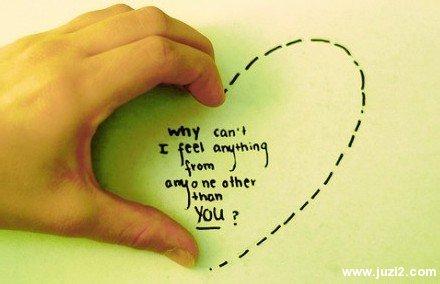 why can't
I feel anything
from
anyone other
than
YOU?
www.juzi2.com